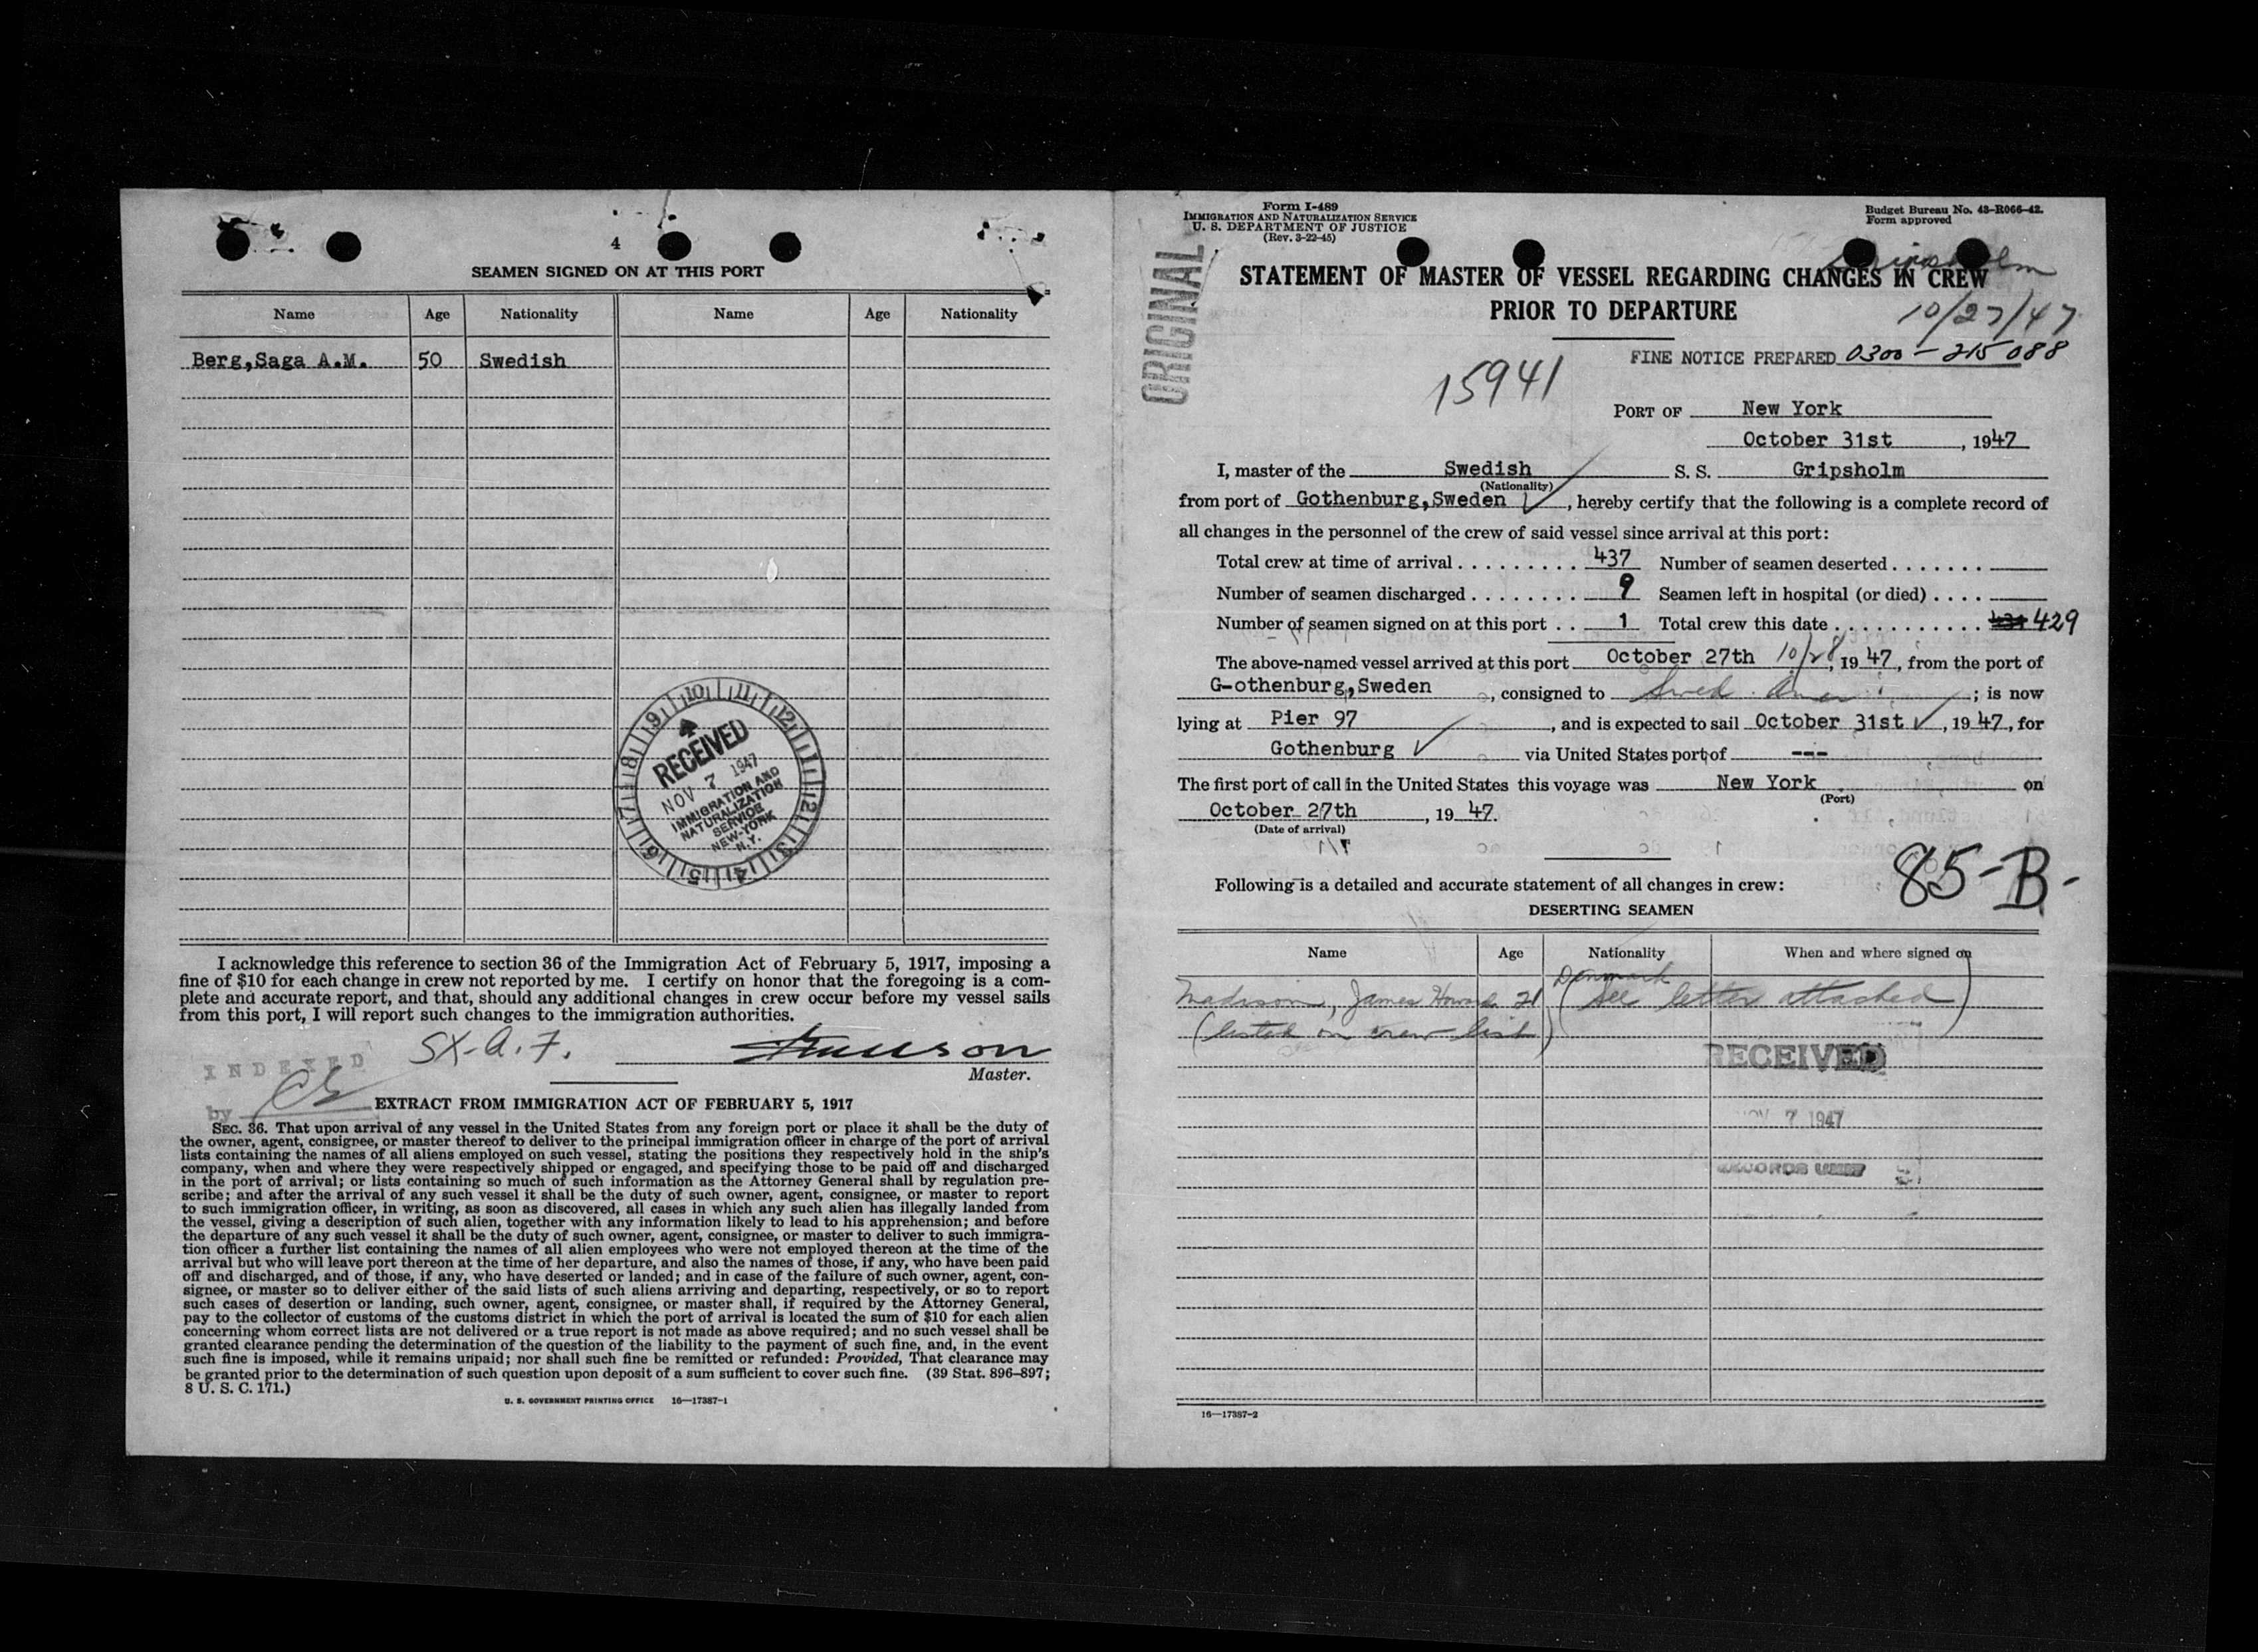 4
SEAMEN SIGNED ON AT THIS PORT
Name Age Nationality Name Age Nationality
Berg,Saga A.M. 50 Swedish
RECEIVED
NOV 7 1947
IMMIGRATION AND
NATURALIZATION
SERVICE
NEW-YORK
N.Y.
I acknowledge this reference to section 36 of the Immigration Act of February 5, 1917, imposing a
fine of $10 for each change in crew not reported by me. I certify on honor that the foregoing is a com-
plete and accurate report, and that, should any additional changes in crew occur before my vessel sails
from this port, I will report such changes to the immigration authorities.
SX-A.F.
Master.
INDEXED
by
EXTRACT FROM IMMIGRATION ACT OF FEBRUARY 5, 1917
SEC. 36. That upon arrival of any vessel in the United States from any foreign port or place it shall be the duty of
the owner, agent, consignee, or master thereof to deliver to the principal immigration officer in charge of the port of arrival
lists containing the names of all aliens employed on such vessel, stating the positions they respectively hold in the ship's
company, when and where they were respectively shipped or engaged, and specifying those to be paid off and discharged
in the port of arrival; or lists containing so much of such information as the Attorney General shall by regulation pre-
scribe; and after the arrival of any such vessel it shall be the duty of such owner, agent, consignee, or master to report
to such immigration officer, in writing, as soon as discovered, all cases in which any such alien has illegally landed from
the vessel, giving a description of such alien, together with any information likely to lead to his apprehension; and before
the departure of any such vessel it shall be the duty of such owner, agent, consignee, or master to deliver to such immigra-
tion officer a further list containing the names of all alien employees who were not employed thereon at the time of the
arrival but who will leave port thereon at the time of her departure, and also the names of those, if any, who have been paid
off and discharged, and of those, if any, who have deserted or landed; and in case of the failure of such owner, agent, con-
signee, or master so to deliver either of the said lists of such aliens arriving and departing, respectively, or so to report
such cases of desertion or landing, such owner, agent, consignee, or master shall, if required by the Attorney General,
pay to the collector of customs of the customs district in which the port of arrival is located the sum of $10 for each alien
concerning whom correct lists are not delivered or a true report is not made as above required; and no such vessel shall be
granted clearance pending the determination of the question of the liability to the payment of such fine, and, in the event
such fine is imposed, while it remains unpaid; nor shall such fine be remitted or refunded: Provided, That clearance may
be granted prior to the determination of such question upon deposit of a sum sufficient to cover such fine. (39 Stat. 896–897;
8 U. S. C. 171.)
U. S. GOVERNMENT PRINTING OFFICE 16—17387-1
Form I-489
IMMIGRATION AND NATURALIZATION SERVICE
U. S. DEPARTMENT OF JUSTICE
(Rev. 3-22-45)
Budget Bureau No. 43-R066-42.
Form approved
ORIGINAL
Gripsholm
STATEMENT OF MASTER OF VESSEL REGARDING CHANGES IN CREW
PRIOR TO DEPARTURE
10/27/47
FINE NOTICE PREPARED 0300-215088
15941
PORT OF New York
October 31st, 1947
I, master of the Swedish S. S. Gripsholm
(Nationality)
from port of Gothenburg,Sweden, hereby certify that the following is a complete record of
all changes in the personnel of the crew of said vessel since arrival at this port:
Total crew at time of arrival . . . . . . . . . 437 Number of seamen deserted . . . . . . .
Number of seamen discharged . . . . . . . . 9 Seamen left in hospital (or died) . . . .
Number of seamen signed on at this port . . 1 Total crew this date . . . . . . . . . . . 429
The above-named vessel arrived at this port October 27th 10/28, 1947, from the port of
G-othenburg,Sweden, consigned to Swed. Amer; is now
lying at Pier 97, and is expected to sail October 31st, 1947, for
Gothenburg via United States port of ---
The first port of call in the United States this voyage was New York on
(Port)
October 27th, 1947.
(Date of arrival)
85-B-
Following is a detailed and accurate statement of all changes in crew:
DESERTING SEAMEN
Name Age Nationality When and where signed on
Denmark
Madison, James Howard 21 (see letter attached)
(listed on crew list)
RECEIVED
NOV 7 1947
RECORDS UNIT
16—17387-2